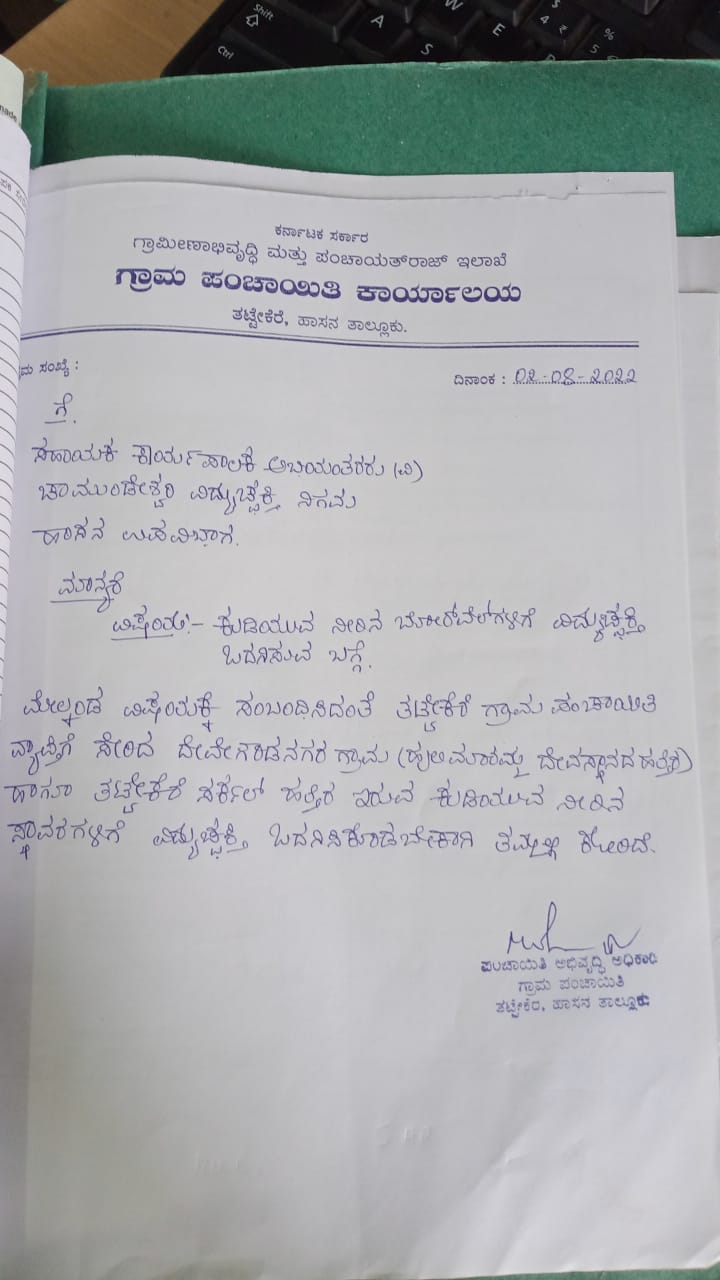 Shift
Ctrl
A
S
W
E
4
₹
%
5
ಕರ್ನಾಟಕ ಸರ್ಕಾರ
ಗ್ರಾಮೀಣಾಭಿವೃದ್ಧಿ ಮತ್ತು ಪಂಚಾಯತ್‌ರಾಜ್ ಇಲಾಖೆ
ಗ್ರಾಮ ಪಂಚಾಯಿತಿ ಕಾರ್ಯಾಲಯ
ತಟ್ಟೇಕೆರೆ, ಹಾಸನ ತಾಲ್ಲೂಕು.
ಸಂಖ್ಯೆ :
ದಿನಾಂಕ : 02-08-2022
ಗೆ.
ಸಹಾಯಕ ಕಾರ್ಯಪಾಲಕ ಅಭಿಯಂತರರು (ವಿ)
ಚಾಮುಂಡೇಶ್ವರಿ ವಿದ್ಯುಚ್ಛಕ್ತಿ ನಿಗಮ
ಹಾಸನ ಉಪವಿಭಾಗ.
ಮಾನ್ಯರೆ
ವಿಷಯ:- ಕುಡಿಯುವ ನೀರಿನ ಬೋರ್‌ವೆಲ್‌ಗಳಿಗೆ ವಿದ್ಯುಚ್ಛಕ್ತಿ
ಒದಗಿಸುವ ಬಗ್ಗೆ.
ಮೇಲ್ಕಂಡ ವಿಷಯಕ್ಕೆ ಸಂಬಂಧಿಸಿದಂತೆ ತಟ್ಟೇಕೆರೆ ಗ್ರಾಮ ಪಂಚಾಯಿತಿ
ವ್ಯಾಪ್ತಿಗೆ ಸೇರಿದ ದೇವೇಗೌಡನಗರ ಗ್ರಾಮ (ಹುಲಿಮಾರಮ್ಮ ದೇವಸ್ಥಾನದ ಹತ್ತಿರ)
ಹಾಗೂ ತಟ್ಟೇಕೆರೆ ಸರ್ಕಲ್ ಹತ್ತಿರ ಇರುವ ಕುಡಿಯುವ ನೀರಿನ
ಸ್ಥಾವರಗಳಿಗೆ ವಿದ್ಯುಚ್ಛಕ್ತಿ ಒದಗಿಸಿಕೊಡಬೇಕಾಗಿ ತಮ್ಮಲ್ಲಿ ಕೋರಿದೆ.
ಪಂಚಾಯಿತಿ ಅಭಿವೃದ್ಧಿ ಅಧಿಕಾರಿ
ಗ್ರಾಮ ಪಂಚಾಯಿತಿ
ತಟ್ಟೇಕೆರೆ, ಹಾಸನ ತಾಲ್ಲೂಕು